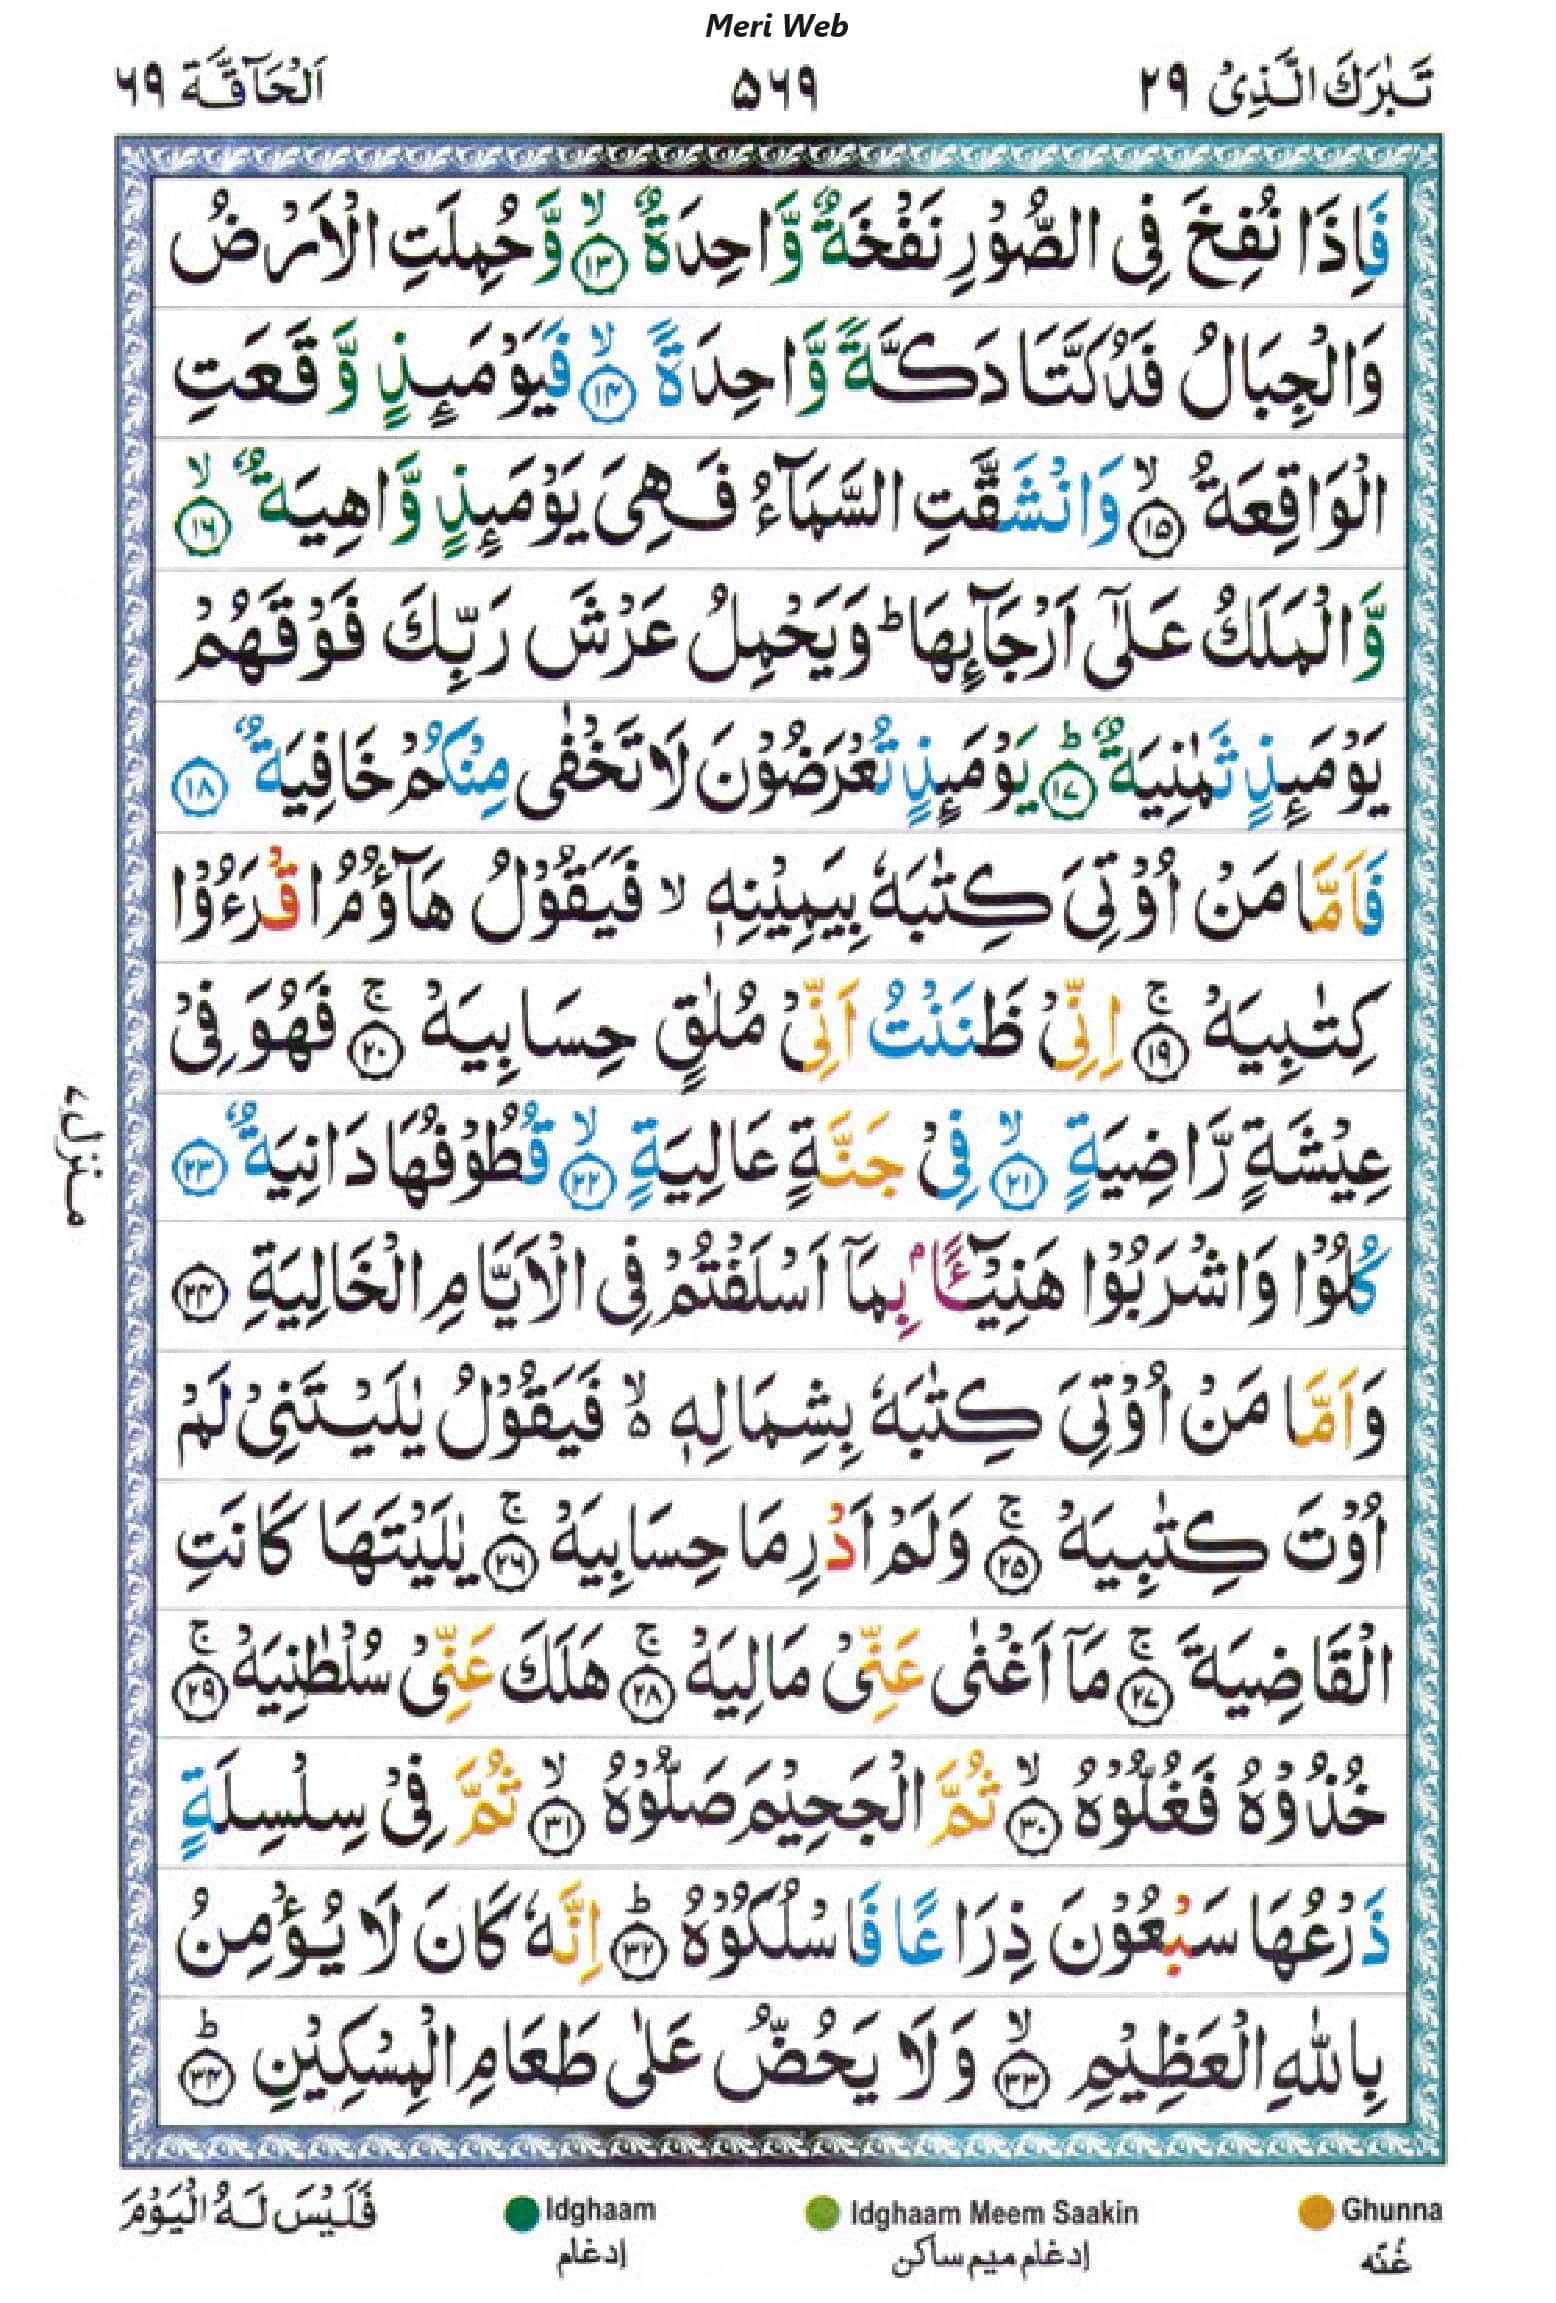 Meri Web
تَبٰرَكَ الَّذِیْ ٢٩
٥٦٩
اَلْحَآقَّة ٦٩
فَاِذَا نُفِخَ فِی الصُّوْرِ نَفْخَةٌ وَّاحِدَةٌ ۙ﴿١٣﴾ وَّحُمِلَتِ الْاَرْضُ
وَالْجِبَالُ فَدُكَّتَا دَكَّةً وَّاحِدَةً ۙ﴿١٤﴾ فَیَوْمَىِٕذٍ وَّقَعَتِ
الْوَاقِعَةُ ۙ﴿١٥﴾ وَانْشَقَّتِ السَّمَآءُ فَهِیَ یَوْمَىِٕذٍ وَّاهِیَةٌ ۙ﴿١٦﴾
وَّالْمَلَكُ عَلٰۤی اَرْجَآىِٕهَا ؕ وَیَحْمِلُ عَرْشَ رَبِّكَ فَوْقَهُمْ
یَوْمَىِٕذٍ ثَمٰنِیَةٌ ؕ﴿١٧﴾ یَوْمَىِٕذٍ تُعْرَضُوْنَ لَا تَخْفٰی مِنْكُمْ خَافِیَةٌ ﴿١٨﴾
فَاَمَّا مَنْ اُوْتِیَ كِتٰبَهٗ بِیَمِیْنِهٖ ۙ فَیَقُوْلُ هَآؤُمُ اقْرَءُوْا
كِتٰبِیَهْ ۚ﴿١٩﴾ اِنِّیْ ظَنَنْتُ اَنِّیْ مُلٰقٍ حِسَابِیَهْ ۚ﴿٢٠﴾ فَهُوَ فِیْ
عِیْشَةٍ رَّاضِیَةٍ ۙ﴿٢١﴾ فِیْ جَنَّةٍ عَالِیَةٍ ۙ﴿٢٢﴾ قُطُوْفُهَا دَانِیَةٌ ﴿٢٣﴾
كُلُوْا وَاشْرَبُوْا هَنِیْٓـًٔۢا بِمَاۤ اَسْلَفْتُمْ فِی الْاَیَّامِ الْخَالِیَةِ ﴿٢٤﴾
وَاَمَّا مَنْ اُوْتِیَ كِتٰبَهٗ بِشِمَالِهٖ ۙ۬ فَیَقُوْلُ یٰلَیْتَنِیْ لَمْ
اُوْتَ كِتٰبِیَهْ ۚ﴿٢٥﴾ وَلَمْ اَدْرِ مَا حِسَابِیَهْ ۚ﴿٢٦﴾ یٰلَیْتَهَا كَانَتِ
الْقَاضِیَةَ ۚ﴿٢٧﴾ مَاۤ اَغْنٰی عَنِّیْ مَالِیَهْ ۚ﴿٢٨﴾ هَلَكَ عَنِّیْ سُلْطٰنِیَهْ ۚ﴿٢٩﴾
خُذُوْهُ فَغُلُّوْهُ ۙ﴿٣٠﴾ ثُمَّ الْجَحِیْمَ صَلُّوْهُ ۙ﴿٣١﴾ ثُمَّ فِیْ سِلْسِلَةٍ
ذَرْعُهَا سَبْعُوْنَ ذِرَاعًا فَاسْلُكُوْهُ ؕ﴿٣٢﴾ اِنَّهٗ كَانَ لَا یُؤْمِنُ
بِاللّٰهِ الْعَظِیْمِ ۙ﴿٣٣﴾ وَلَا یَحُضُّ عَلٰی طَعَامِ الْمِسْكِیْنِ ؕ﴿٣٤﴾
منزل ٧
Ghunna
غُنّه
Idghaam Meem Saakin
إدغام ميم ساكن
Idghaam
إدغام
فَلَیْسَ لَهُ الْیَوْمَ